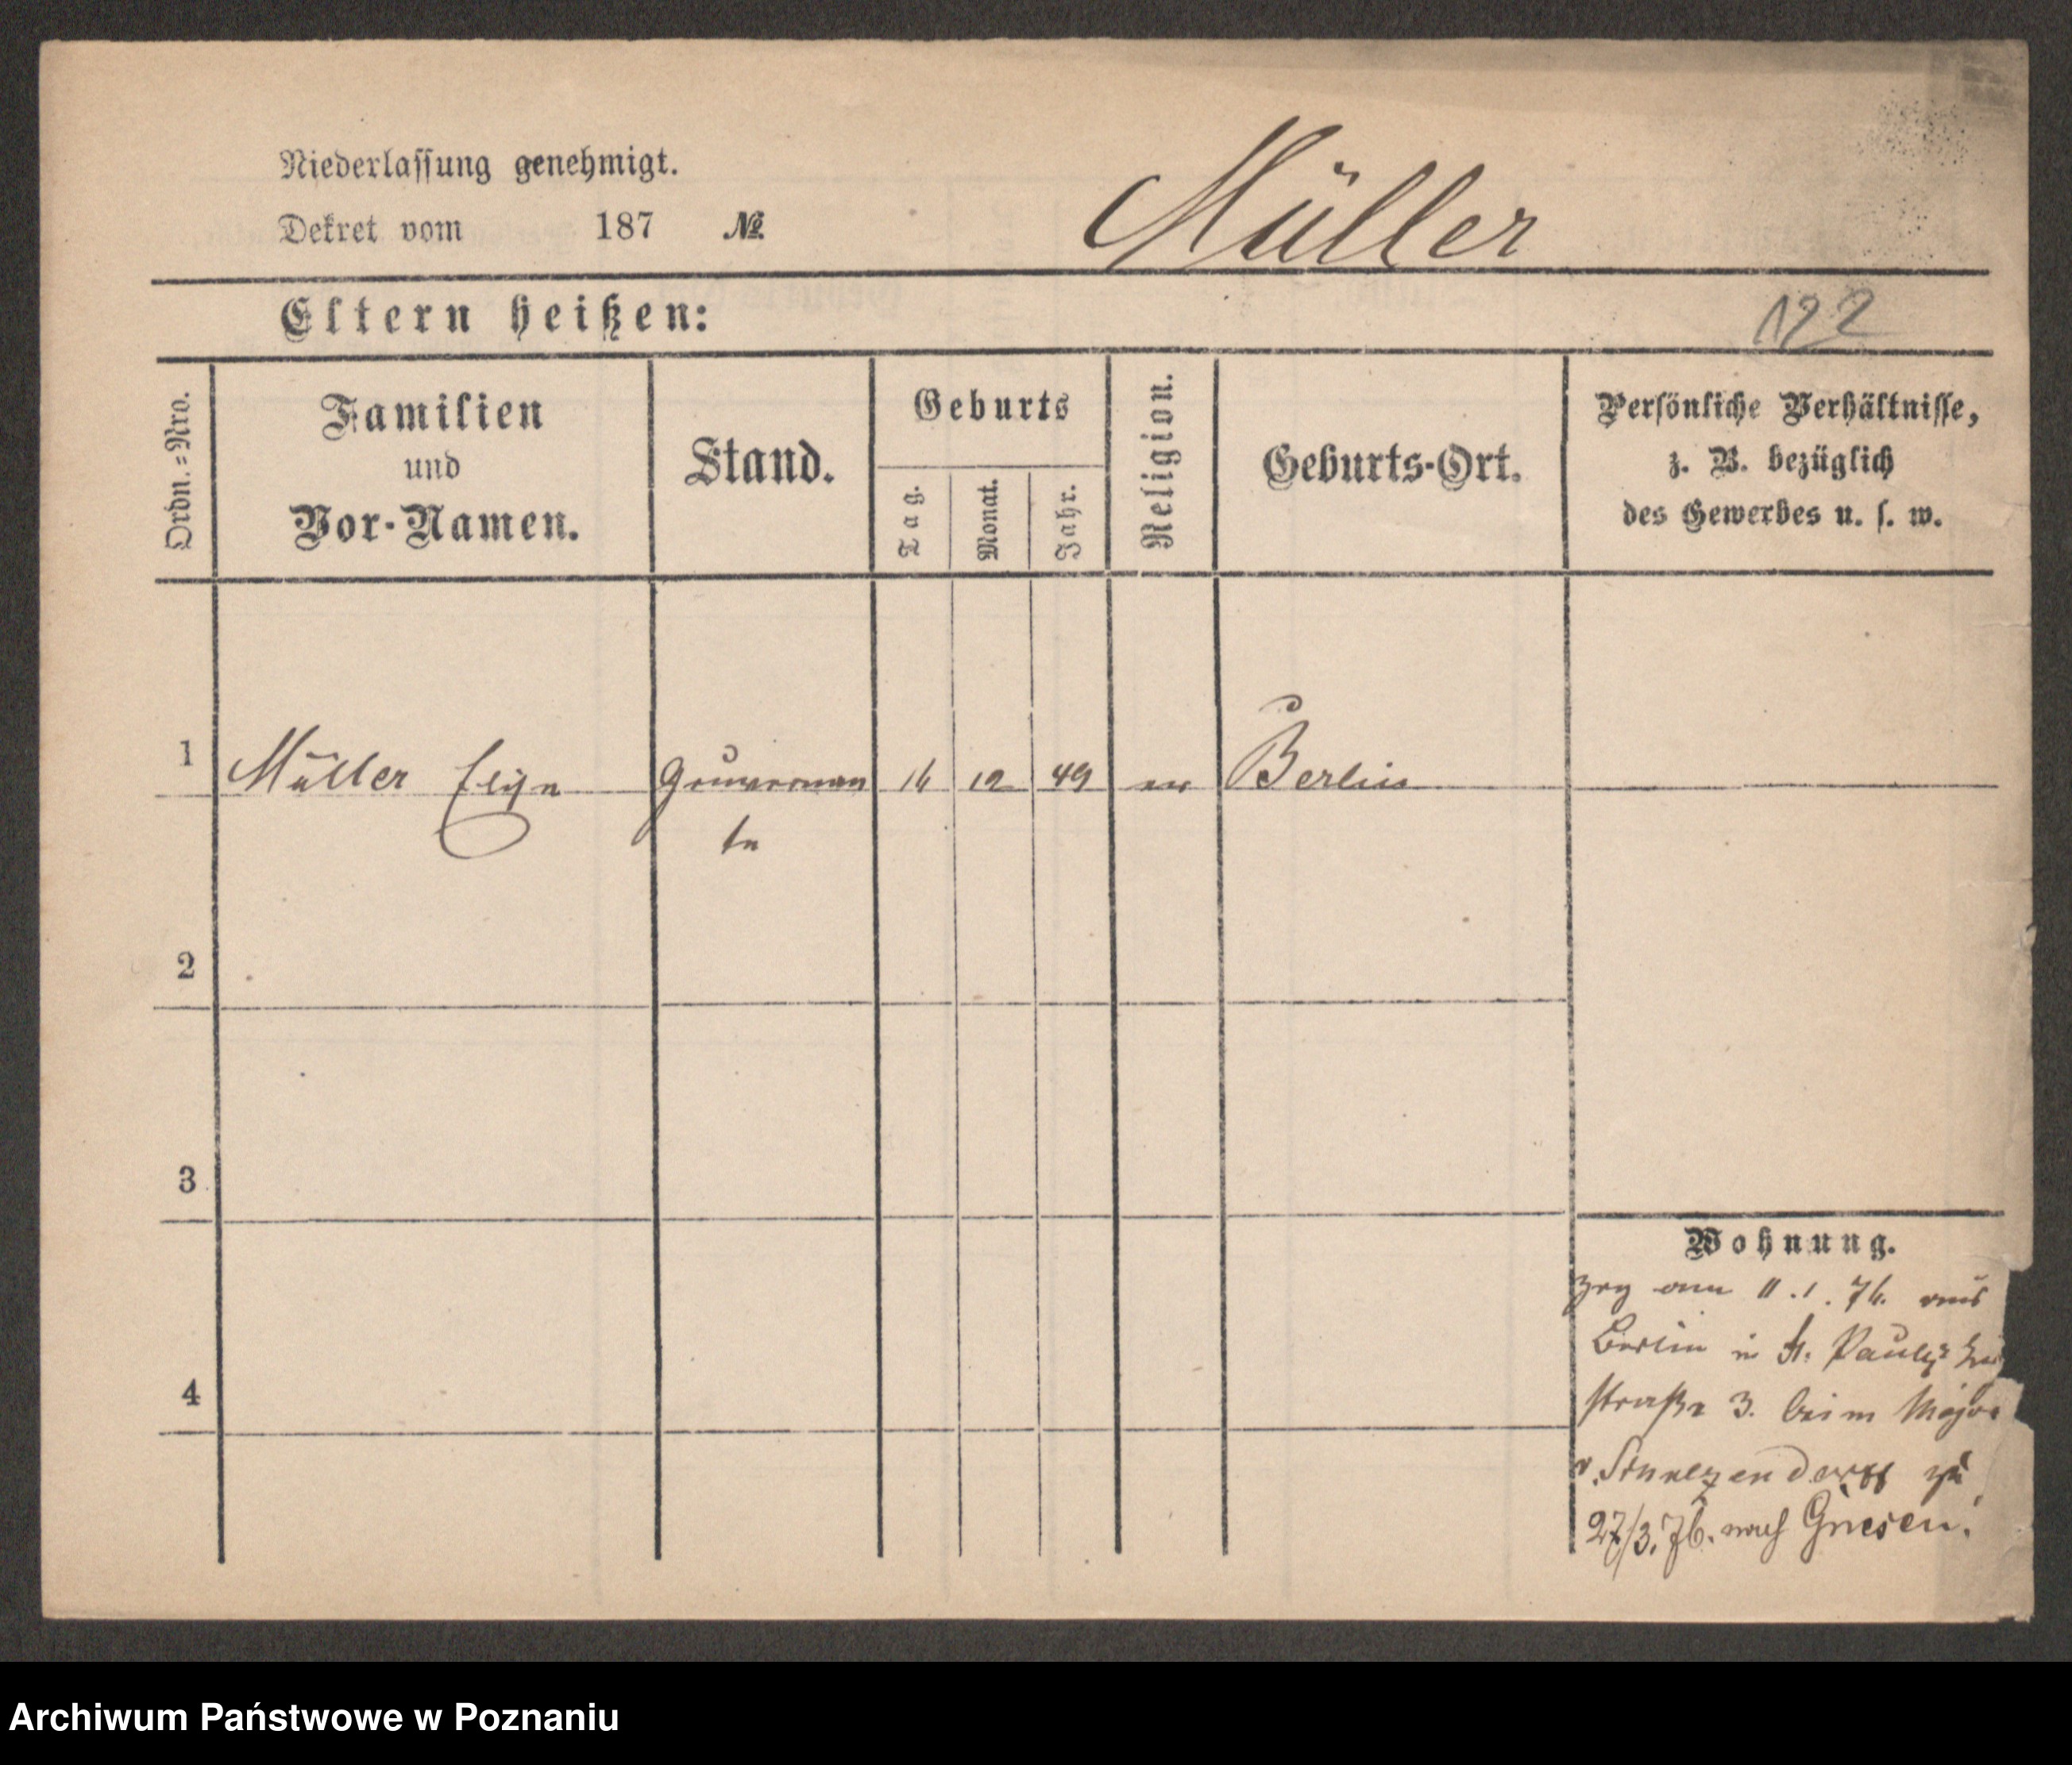 Niederlassung genehmigt.
Dekret vom 187 №
Müller
Eltern heißen:
122
Ordn.=Nro.
Familien
und
Vor-Namen.
Stand.
Geburts
Tag.
Monat.
Jahr.
Religion.
Geburts-Ort.
Persönliche Verhältnisse,
z. B. bezüglich
des Gewerbes u. s. w.
1 Müller Elise Gouvernan 12 49 ev Berlin
te
2
3
4
Wohnung.
zog am 11.1.76. aus
Berlin in St. Pauly
straße 3. beim Major
v. zu
27/3.76. nach Gnesen.
Archiwum Państwowe w Poznaniu